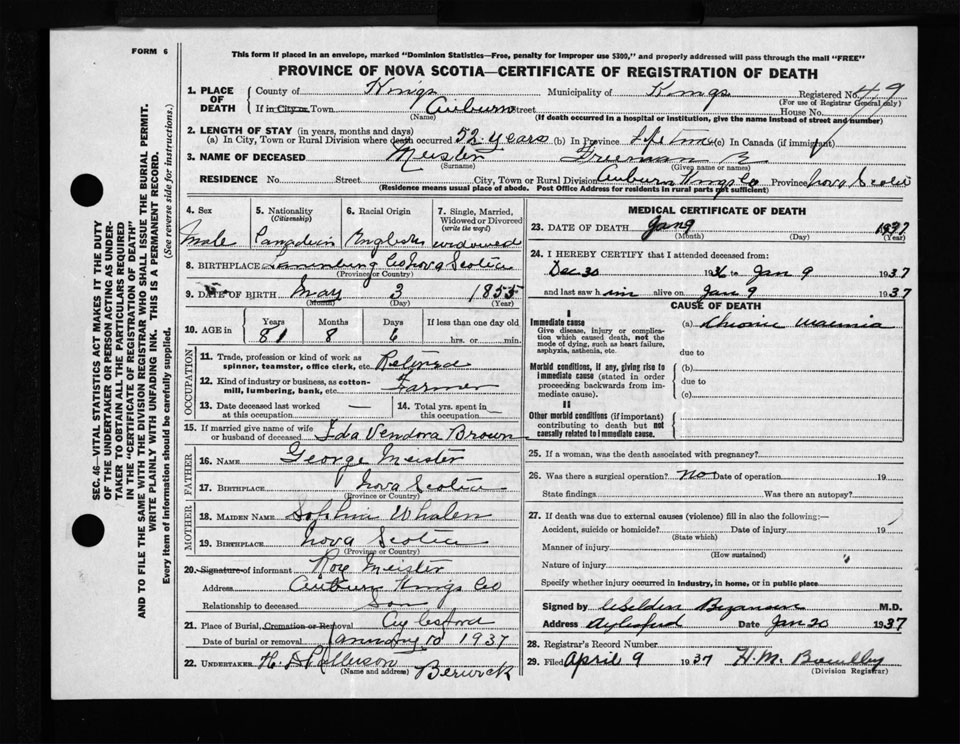 FORM 6
This form if placed in an envelope, marked "Dominion Statistics—Free, penalty for improper use $300," and properly addressed will pass through the mail "FREE"
PROVINCE OF NOVA SCOTIA—CERTIFICATE OF REGISTRATION OF DEATH
1. PLACE OF DEATH
County of Kings Municipality of Kings Registered No. 49
(For use of Registrar General only)
If in City or Town Auburn Street House No.
(Name) (If death occurred in a hospital or institution, give the name instead of street and number)
2. LENGTH OF STAY (in years, months and days)
(a) In City, Town or Rural Division where death occurred 52 years (b) In Province Life time (c) In Canada (if immigrant)
3. NAME OF DECEASED Meister Freeman E
(Surname) (Given name or names)
RESIDENCE No. Street City, Town or Rural Division Auburn Kings Co Province Nova Scotia
(Residence means usual place of abode. Post Office Address for residents in rural parts not sufficient)
4. Sex 5. Nationality 6. Racial Origin 7. Single, Married, Widowed or Divorced
(Citizenship) (write the word)
Male Canadian English widowed
8. BIRTHPLACE Lunenburg Co Nova Scotia
(Province or Country)
9. DATE OF BIRTH May 3 1855
(Month) (Day) (Year)
10. AGE in Years Months Days If less than one day old
81 8 6 hrs. or min.
OCCUPATION
11. Trade, profession or kind of work as spinner, teamster, office clerk, etc. Retired
12. Kind of industry or business, as cotton-mill, lumbering, bank, etc. Farmer
13. Date deceased last worked at this occupation. —
14. Total yrs. spent in this occupation. —
15. If married give name of wife or husband of deceased Ida Vendora Brown
FATHER
16. NAME George Meister
17. BIRTHPLACE Nova Scotia
(Province or Country)
MOTHER
18. MAIDEN NAME Sophia Whalen
19. BIRTHPLACE Nova Scotia
(Province or Country)
20. Signature of informant Roy Meister
Address Auburn Kings Co
Relationship to deceased Son
21. Place of Burial, Cremation or Removal Aylesford
Date of burial or removal January 10 1937
22. UNDERTAKER H. D Patterson Berwick
(Name and address)
MEDICAL CERTIFICATE OF DEATH
23. DATE OF DEATH Jan 9 1937
(Month) (Day) (Year)
24. I HEREBY CERTIFY that I attended deceased from:
Dec 30 1936 to Jan 9 1937
and last saw him alive on Jan 9 1937
CAUSE OF DEATH
I
Immediate cause (a) Chronic uraemia
Give disease, injury or complication which caused death, not the mode of dying, such as heart failure, asphyxia, asthenia, etc.
due to
Morbid conditions, if any, giving rise to immediate cause (stated in order proceeding backwards from immediate cause).
(b)
due to
(c)
II
Other morbid conditions (if important) contributing to death but not causally related to immediate cause.
25. If a woman, was the death associated with pregnancy?
26. Was there a surgical operation? no Date of operation 19
State findings Was there an autopsy?
27. If death was due to external causes (violence) fill in also the following:—
Accident, suicide or homicide? Date of injury 19
(State which)
Manner of injury
(How sustained)
Nature of injury
Specify whether injury occurred in industry, in home, or in public place
Signed by M.D.
Address Aylesford Date Jan 20 1937
28. Registrar's Record Number
29. Filed April 9 1937 H. M.
(Division Registrar)
SEC. 46—VITAL STATISTICS ACT MAKES IT THE DUTY
OF THE UNDERTAKER OR PERSON ACTING AS UNDER-
TAKER TO OBTAIN ALL THE PARTICULARS REQUIRED
IN THE "CERTIFICATE OF REGISTRATION OF DEATH"
AND TO FILE THE SAME WITH THE DIVISION REGISTRAR WHO SHALL ISSUE THE BURIAL PERMIT.
WRITE PLAINLY WITH UNFADING INK. THIS IS A PERMANENT RECORD.
Every item of information should be carefully supplied. (See reverse side for instructions.)